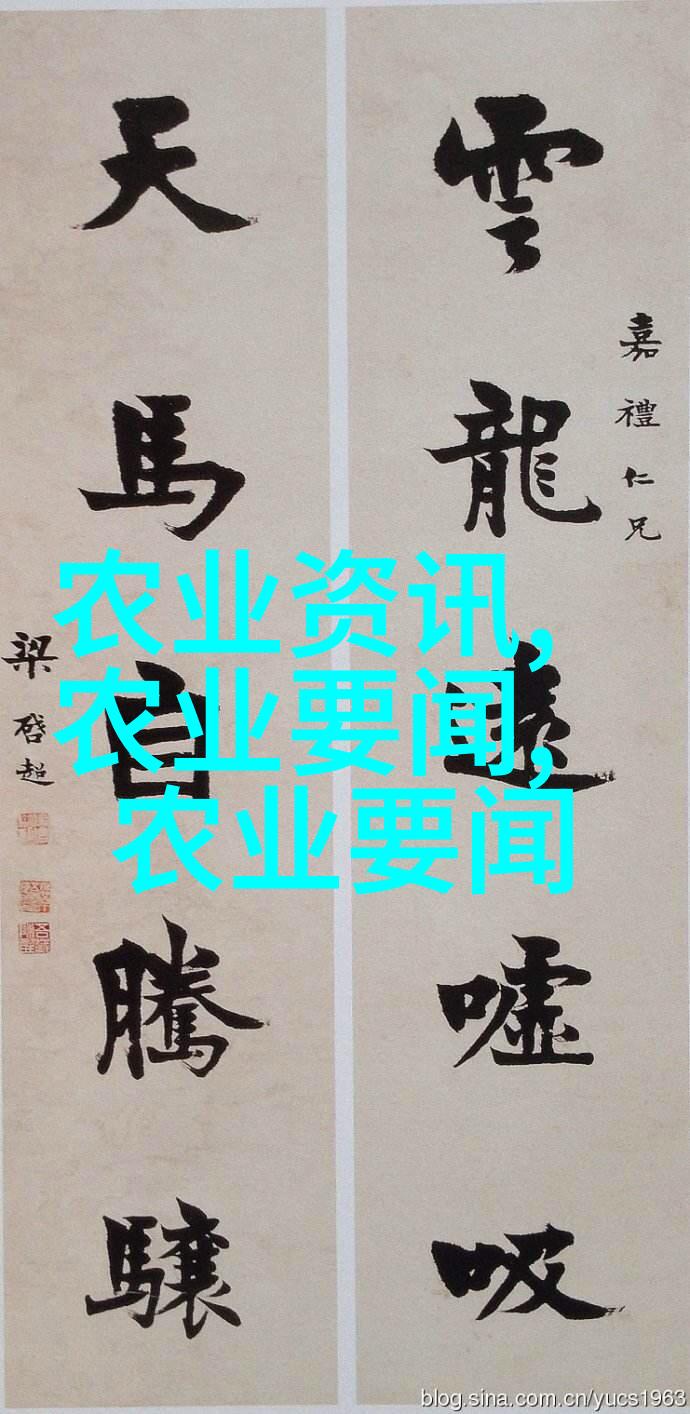 嘉禮仁兄
雲龍遠噓吸
天馬自騰驤
梁啟超
农业资讯,
农业要闻,
农业要闻
blog.sina.com.cn/yucs1963